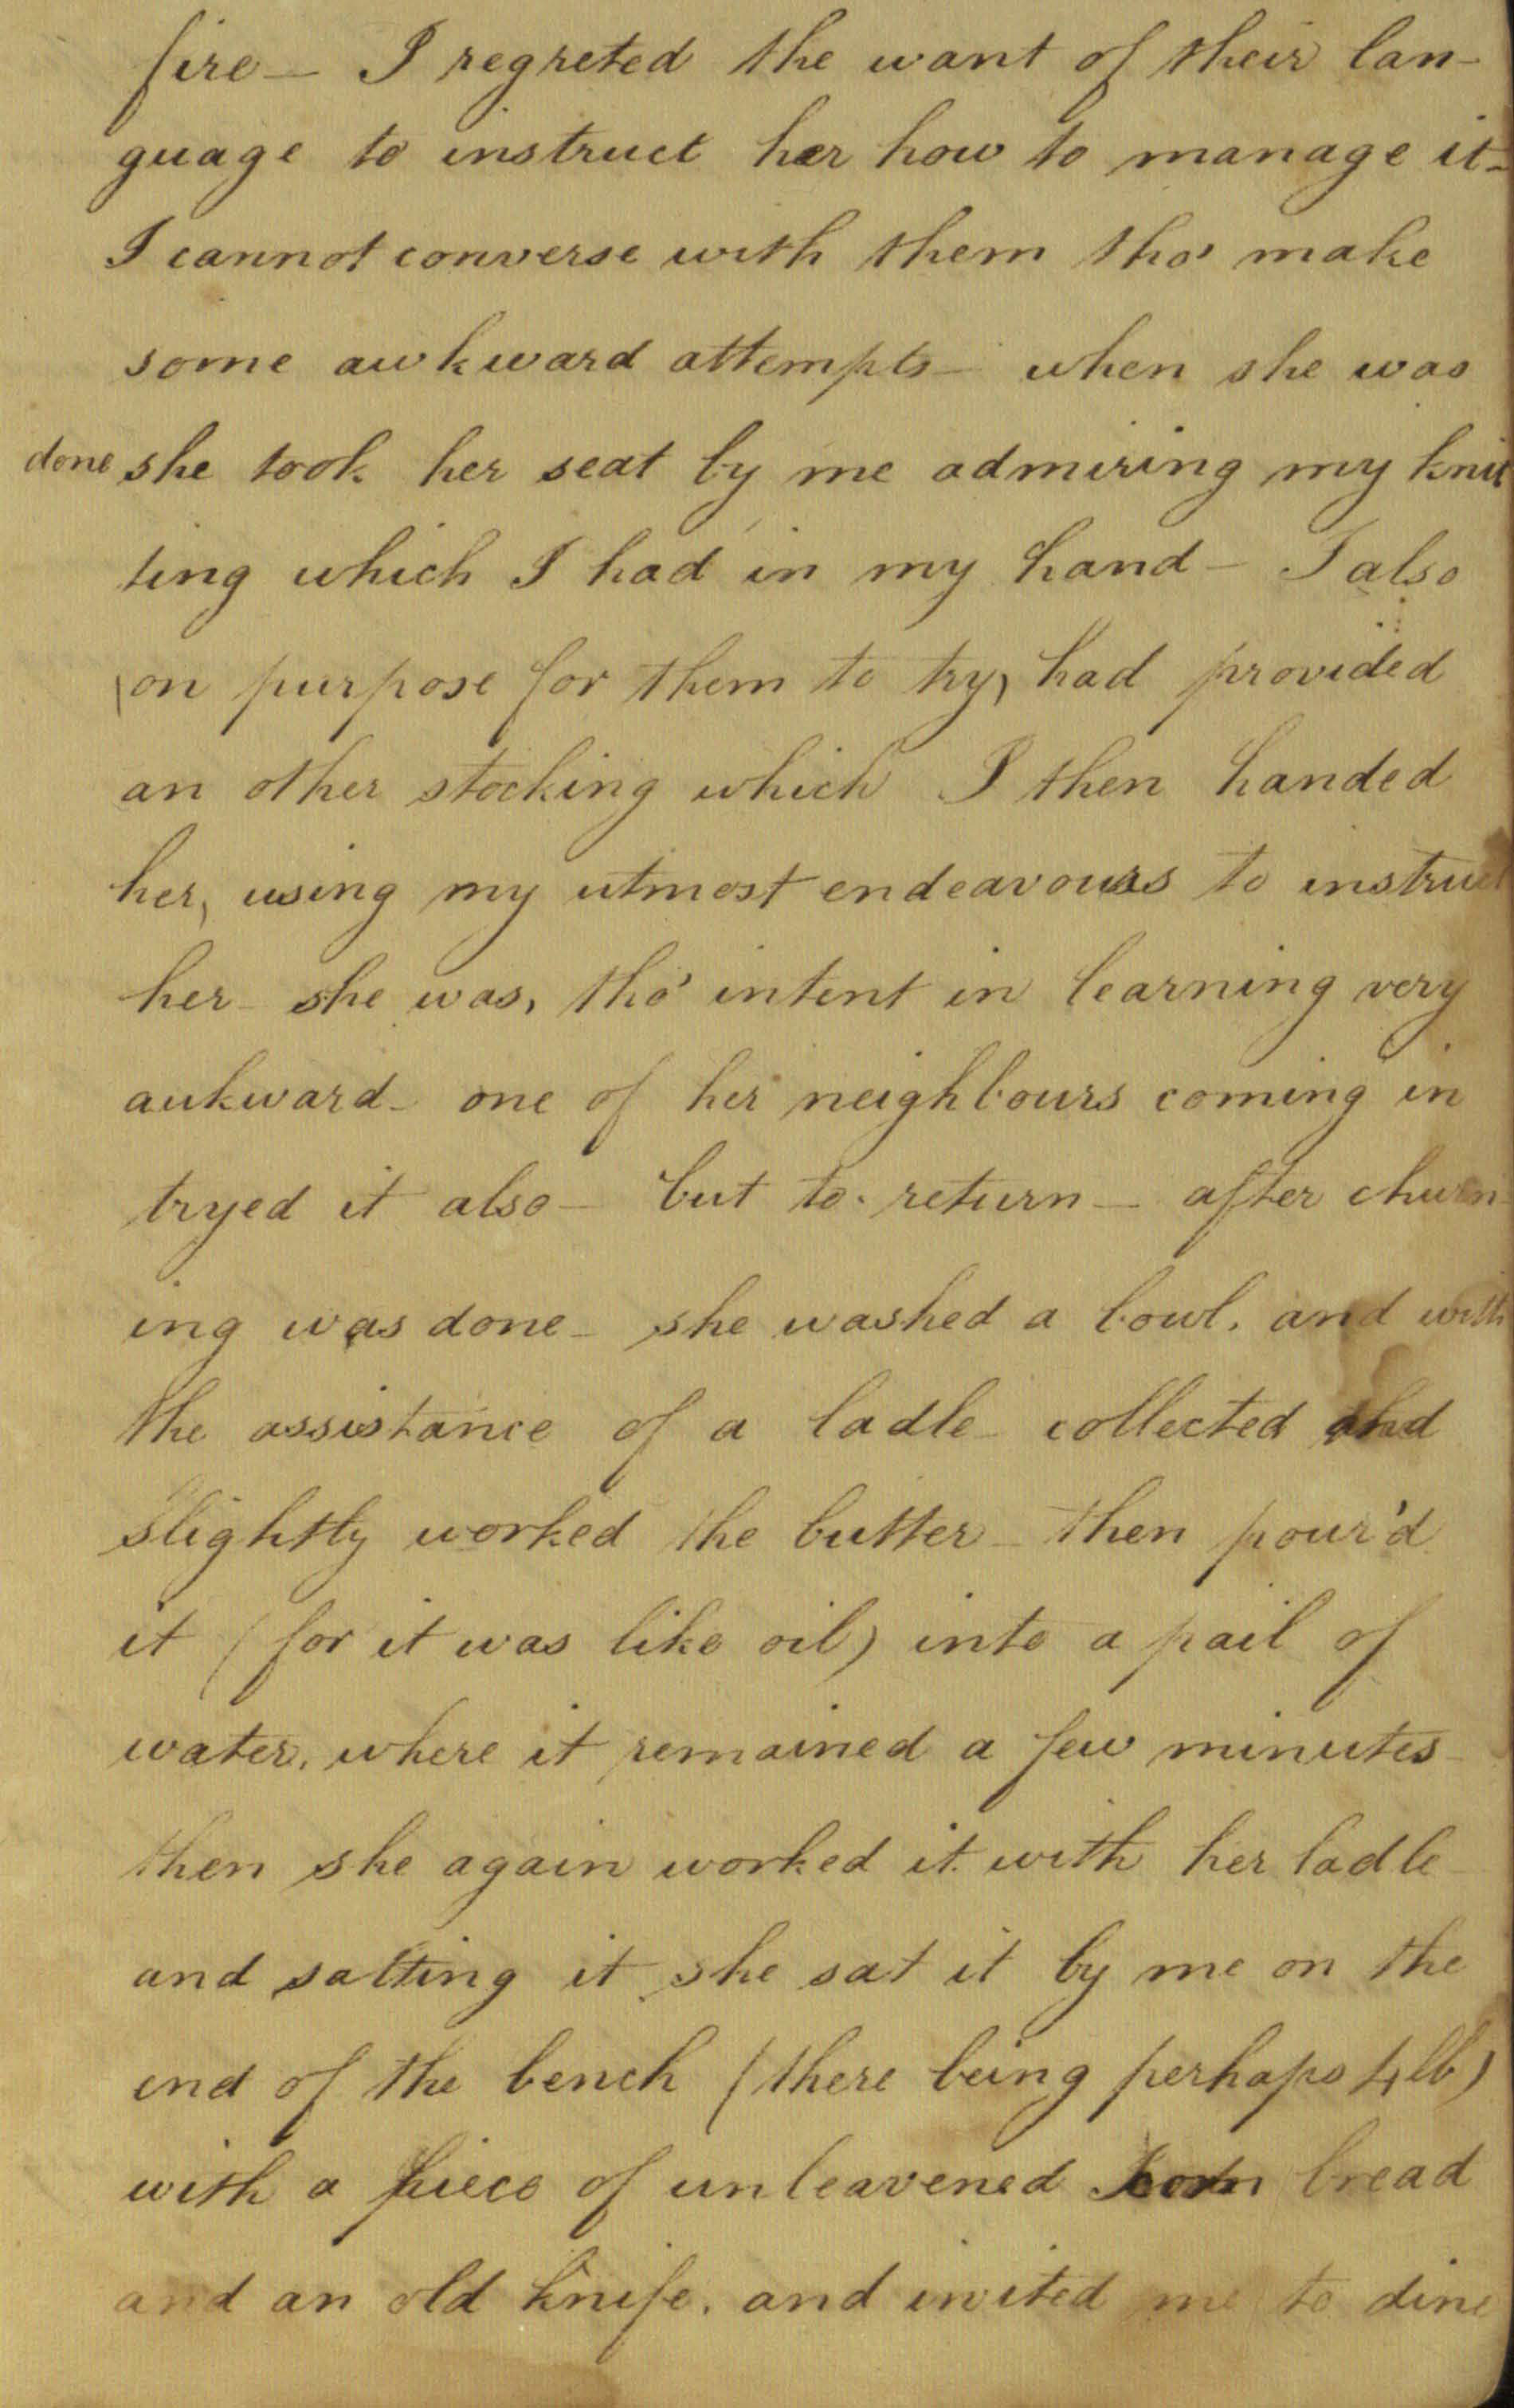 fire — I regreted the want of their lan-
guage to instruct her how to manage it -
I cannot converse with them tho' make
some awkward attempts - when she was
done she took her seat by me admiring my knit
ting which I had in my hand - I also
(on purpose for them to try) had provided
an other stocking which I then handed
her, using my utmost endeavours to instruct
her - she was, tho' intent in learning very
aukward - one of her neighbours coming in
tryed it also - but to return - after churn-
ing was done - she washed a bowl, and with
the assistance of a ladle - collected and
slightly worked the butter - then pour'd
it (for it was like oil) into a pail of
water, where it remained a few minutes -
then she again worked it with her ladle -
and salting it she sat it by me on the
end of the bench (there being perhaps 4 lb)
with a piece of unleavened corn bread
and an old knife, and invited me to dine